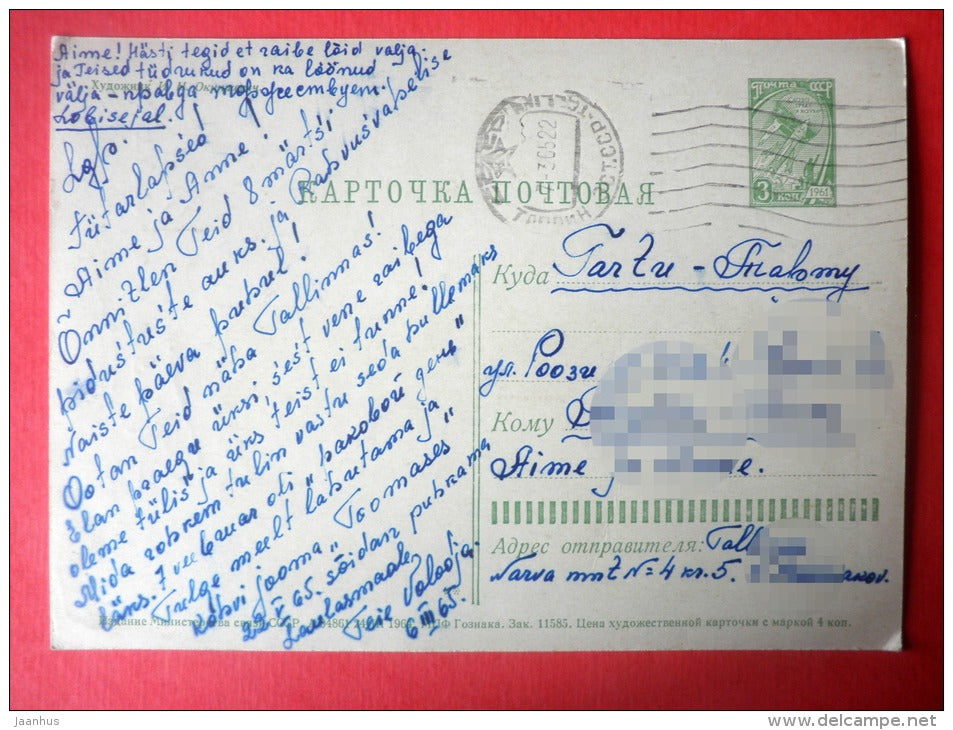 Aime! Hästi tegid et raibe lõid välja.
ja Teised tüdrukud on ka löönud
välja – правда торжествует!
Lobisejal.
Художник
Lgp.
tütarlapsed!
Aime ja Anne!
Õnnitlen Teid 8 märtsi
pidustuste auks. ja Rahvusvahelise
Naiste päeva puhul!
Ootan Teid näha Tallinnas!
Elan praegu üksi, sest vene raibega
oleme tülis ja üks teist ei tunne!
Mida rohkem tulin vastu seda hullemaks
läks. 7 veebruar oli "роковой день"
Tulge meelt lahutama ja
kohvi jooma "Toomases"
22 V 65. sõidan puhkama
Laulasmaale
Teie Valooja.
6 III 65.
ПОЧТА СССР
3 КОП.
1961
ТАЛЛИН
КАРТОЧКА ПОЧТОВАЯ
Куда Tartu –
ул. Роози
Кому
Aime
Адрес отправителя: Tall
Narva mnt N=4 kr. 5.
Издание Министерства связи СССР. МПФ Гознака. Зак. 11585. Цена художественной карточки с маркой 4 коп.
Jaanhus
www.delcampe.net